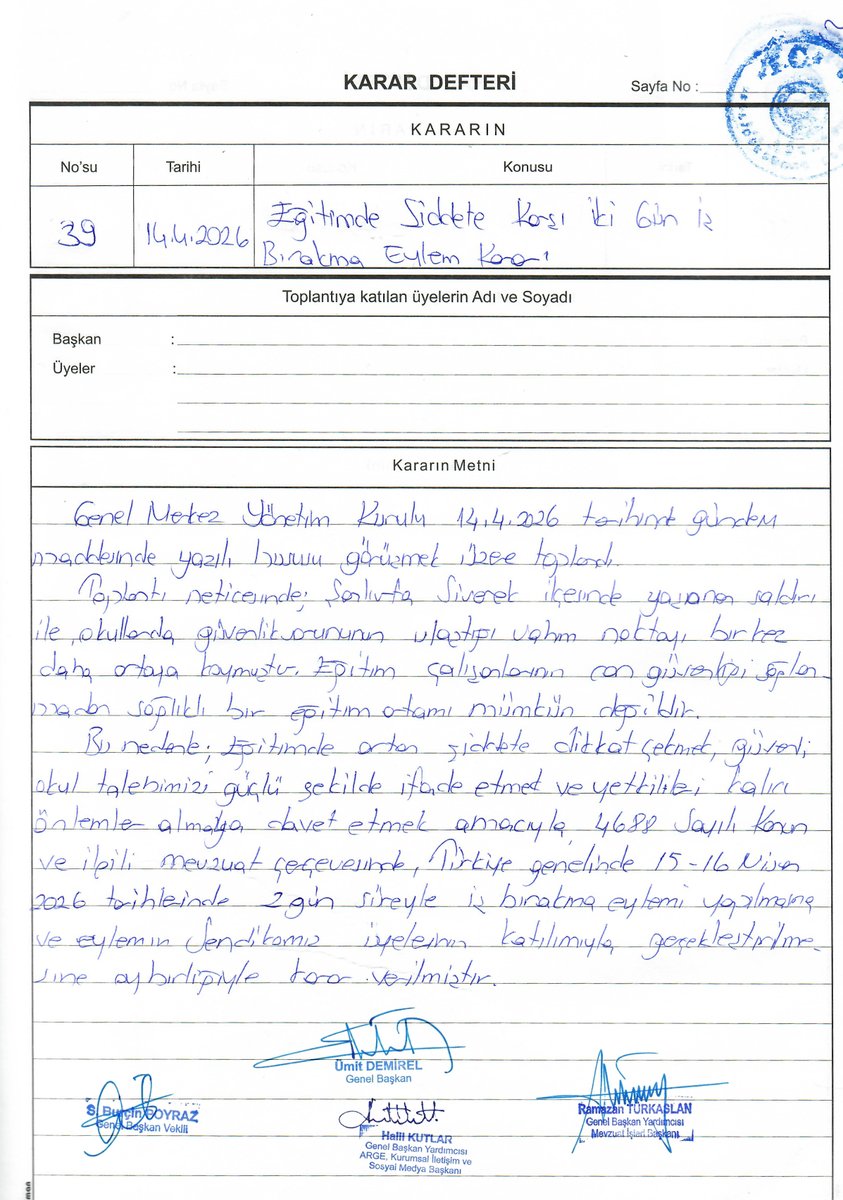 KARAR DEFTERİ
Sayfa No :
KARARIN
No'su Tarihi Konusu
39 14.4.2026 Eğitimde Şiddete Karşı İki Gün İş
Bırakma Eylem Kararı
Toplantıya katılan üyelerin Adı ve Soyadı
Başkan :
Üyeler :
Kararın Metni
Genel Merkez Yönetim Kurulu 14.4.2026 tarihinde gündem
maddesinde yazılı hususu görüşmek üzere toplandı.
Toplantı neticesinde; Şanlıurfa Siverek ilçesinde yaşanan saldırı
ile, okullarda güvenlik sorununun ulaştığı vahim noktayı bir kez
daha ortaya koymuştur. Eğitim çalışanlarının can güvenliği sağlan-
madan sağlıklı bir eğitim ortamı mümkün değildir.
Bu nedenle; Eğitimde artan şiddete dikkat çekmek, güvenli
okul talebimizi güçlü şekilde ifade etmek ve yetkilileri kalıcı
önlemler almaya davet etmek amacıyla, 4688 Sayılı Kanun
ve ilgili mevzuat çerçevesinde, Türkiye genelinde 15-16 Nisan
2026 tarihlerinde 2 gün süreyle iş bırakma eylemi yapılmasına
ve eylemin Sendikamız üyelerinin katılımıyla gerçekleştirilme-
sine oybirliğiyle karar verilmiştir.
Ümit DEMİREL
Genel Başkan
S. Burçin POYRAZ
Genel Başkan Vekili
Halil KUTLAR
Genel Başkan Yardımcısı
ARGE, Kurumsal İletişim ve
Sosyal Medya Başkanı
Ramazan TÜRKASLAN
Genel Başkan Yardımcısı
Mevzuat İşleri Başkanı
T.C.